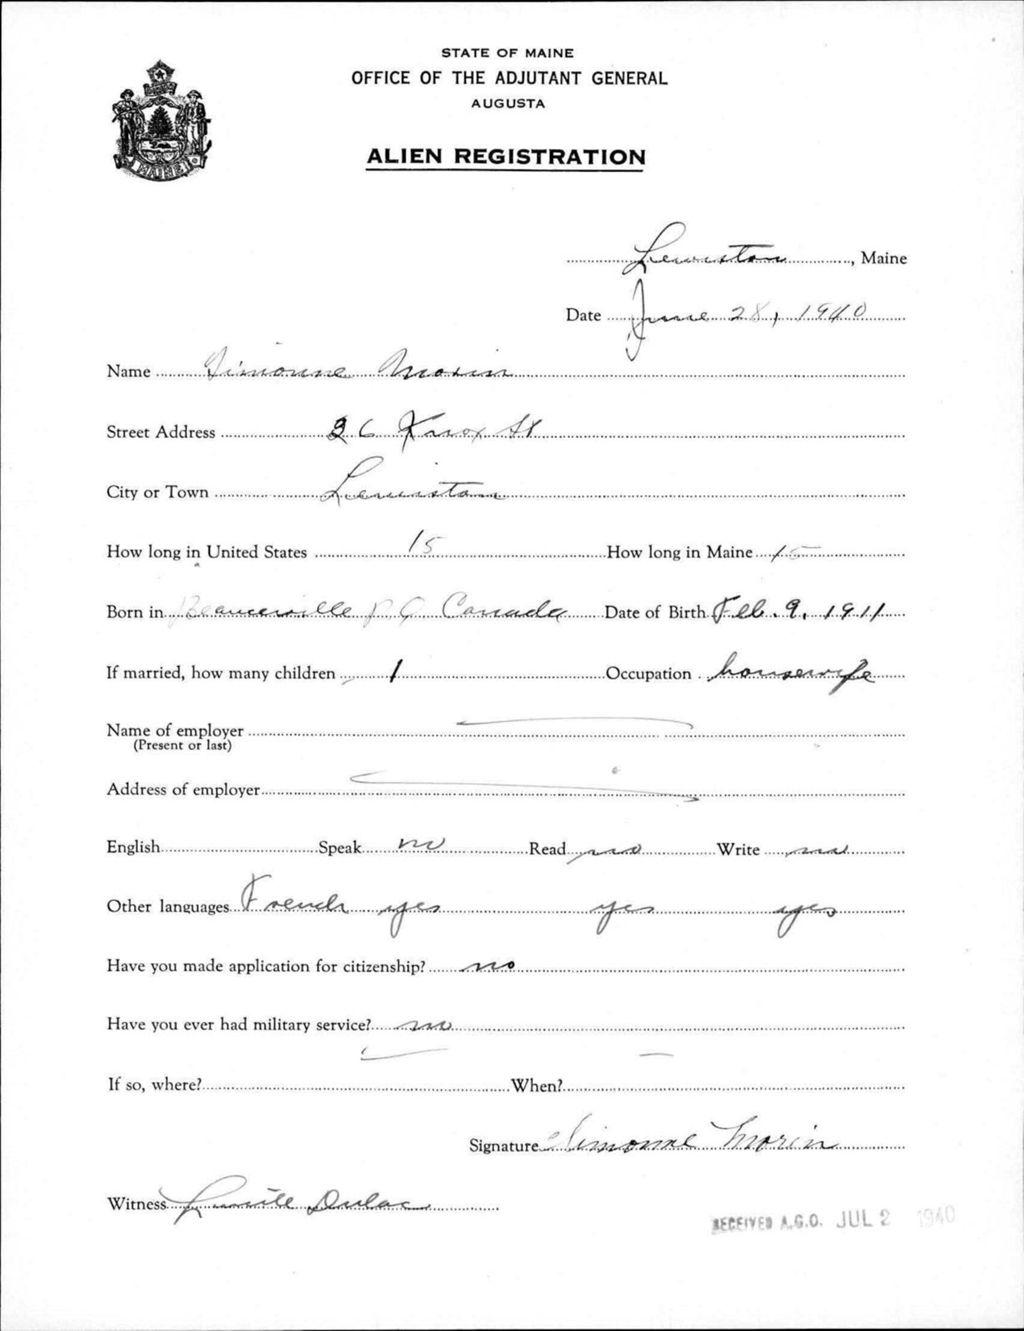 STATE OF MAINE
OFFICE OF THE ADJUTANT GENERAL
AUGUSTA
MAINE
ALIEN REGISTRATION
Lewiston, Maine
Date June 28, 1940
Name Simonne Morin
Street Address 36 Knox St
City or Town Lewiston
How long in United States 15 How long in Maine 15
Born in Beauceville P. Q. Canada Date of Birth Feb. 9, 1911
If married, how many children 1 Occupation housewife
Name of employer
(Present or last)
Address of employer
English Speak no Read no Write no
Other languages French yes yes yes
Have you made application for citizenship? no
Have you ever had military service? no
If so, where? When?
Signature Simonne Morin
Witness Lucille Dulac
RECEIVED A.G.O. JUL 2 1940